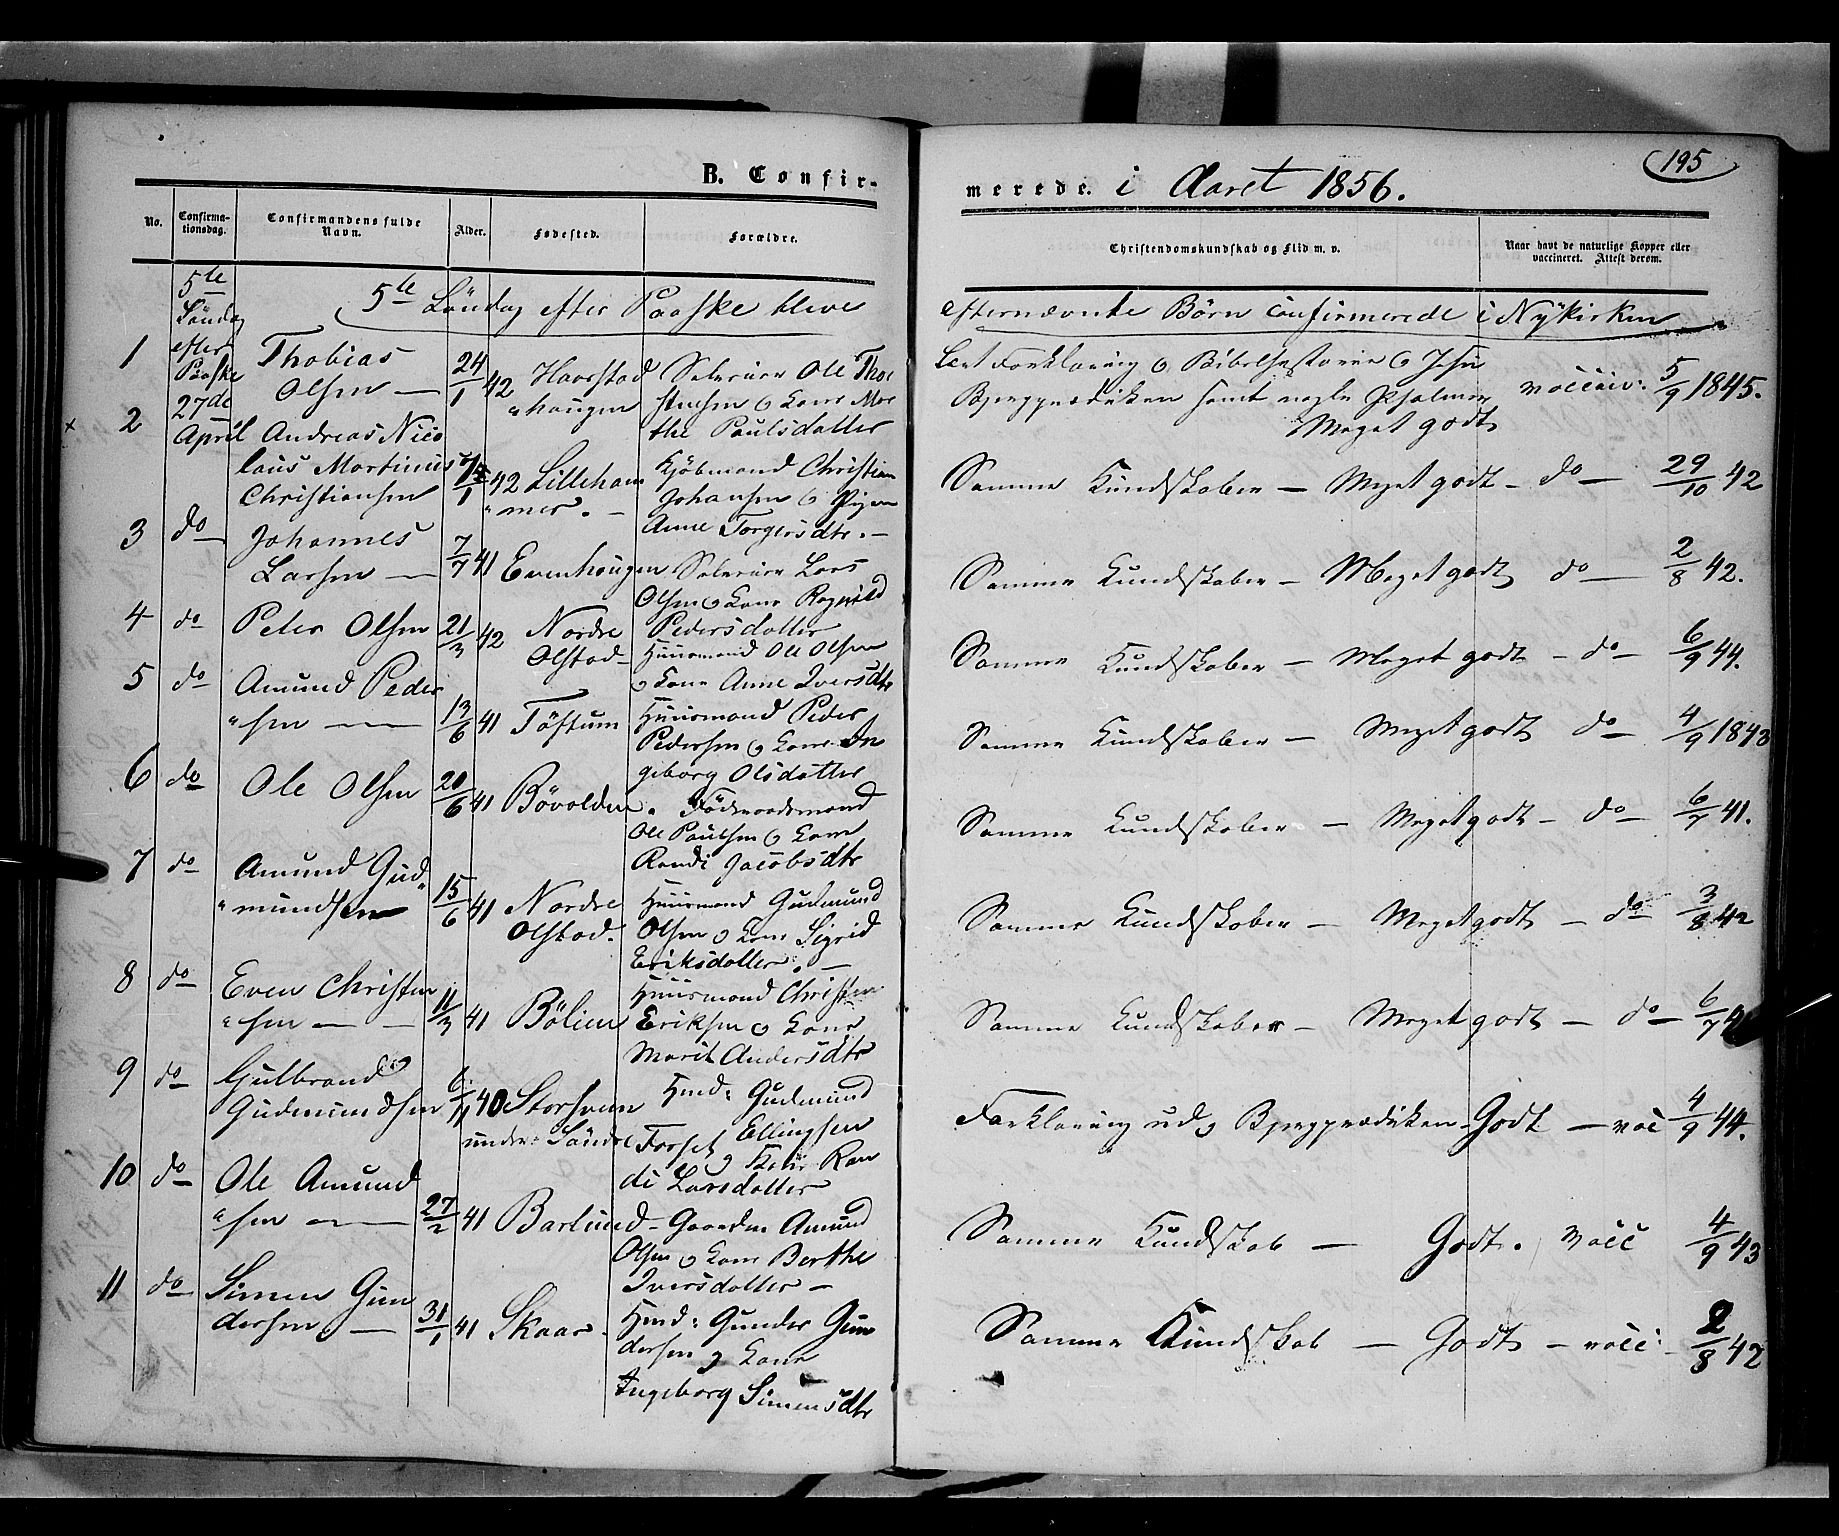 195
B. Confir-
merede. i Aaret 1856.
No.
Confirma-
tionsdag.
Confirmandens fulde
Navn.
Alder.
Fødested.
Forældre.
Christendomskundskab og Flid m. v.
Naar havt de naturlige Kopper eller
vaccineret. Attest derom.
5te Søndag efter Paaske bleve efternævnte Børn confirmerede i Nykirken
5te
Søndag
efter
Paaske
27de
April
1 Thobias
Olsen — 24/1 42 Haarstad
haugen
Selveier Ole Thor
stensen & Kone Mar
the Paulsdatter
Læst Forklaring & Bibelhistorie & Jesu
Bjergprædiken samt nogle Psalmer
Meget godt
vaccin: 5/9 1845.
x 2 Andreas Nico
laus Martinus
Christiansen
42 Lilleham
mer. —
Kjöbmand Christian
Johansen & Pigen
Anne Torgersdtr. —
Samme Kundskaber — Meget godt — do — 29/10 42
3 do Johannes
Larsen — 7/7 41 Evenhougen
Selveier Lars
Olsen & Kone Ragnild
Pedersdatter
Samme Kundskaber — Meget godt do — 2/8 42.
4 do Peter Olsen 21/3 42 Nordre
Olstad —
Huusmand Ole Olsen
& Kone Anne Iversdtr
Samme Kundskaber — Meget godt — do — 6/9 44.
5 do Amund Peder
sen — — 13/6 41 Töftum
Huusmand Peder
Pedersen & Kone In
geborg Olsdatter
Samme Kundskaber — Meget godt do — 4/9 1843
6 do Ole Olsen 20/6 41 Bövolden
Föderaadsmand
Ole Paulsen & Kone
Randi Jacobsdtr
Samme Kundskaber — Meget godt — do — 6/7 41.
7 do Amund Gud
mundsen 15/6 41 Nordre
Olstad.
Huusmand Gudmund
Olsen & Kone Sigrid
Eriksdatter. —
Samme Kundskaber — Meget godt — do 3/8 42
8 do Even Christen
sen — — 11/3 41 Bölien
Huusmand Christen
Eriksen & Kone
Marit Andersdtr
Samme Kundskaber — Meget godt — do — 6/7
9 do Gulbrand
Gudmundsen 40 Storsveen
under Söndre Forset
Hmd: Gudmund
Ellingsen
& Kone Ran
di Larsdatter
Forklaring udg Bjergprædiken — Godt — vac 4/9 44.
10 do Ole Amund
sen — — 27/2 41 Barlund —
Gaardm Amund
Olsen & Kone Berthe
Iversdatter —
Samme Kundskab — Godt. vacc 4/9 43
11 do Simen Gun
dersen. — 31/1 41 Skaar —
Hmd: Gunder Gun
dersen & Kone
Ingeborg Simensdtr
Samme Kundskab — Godt — vacc: — 2/8 42